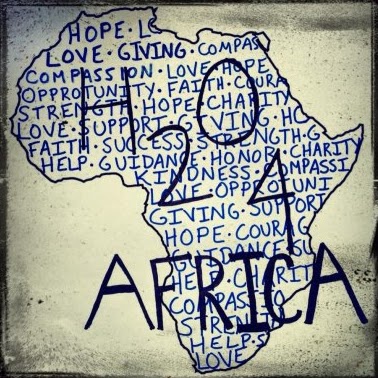 HOPE · L
LOVE · GIVING · COMPAS
COMPASSION · LOVE · HOPE
OPPROTUNITY · FAITH · COURA
STRENGTH · HOPE · CHARITY
LOVE · SUPPORT · GIVING · HO
FAITH · SUCCESS · STRENGTH · G
HELP · GUIDANCE · HONOR · CHARITY
KINDNESS · COMPASSI
LOVE · OPPROTUNI
GIVING · SUPPORT
HOPE · COURAG
GUIDANCE · SU
HELP · CHARIT
COMPASSIO
STRENGTH
HELP · S
LOVE
H2O
4
AFRICA